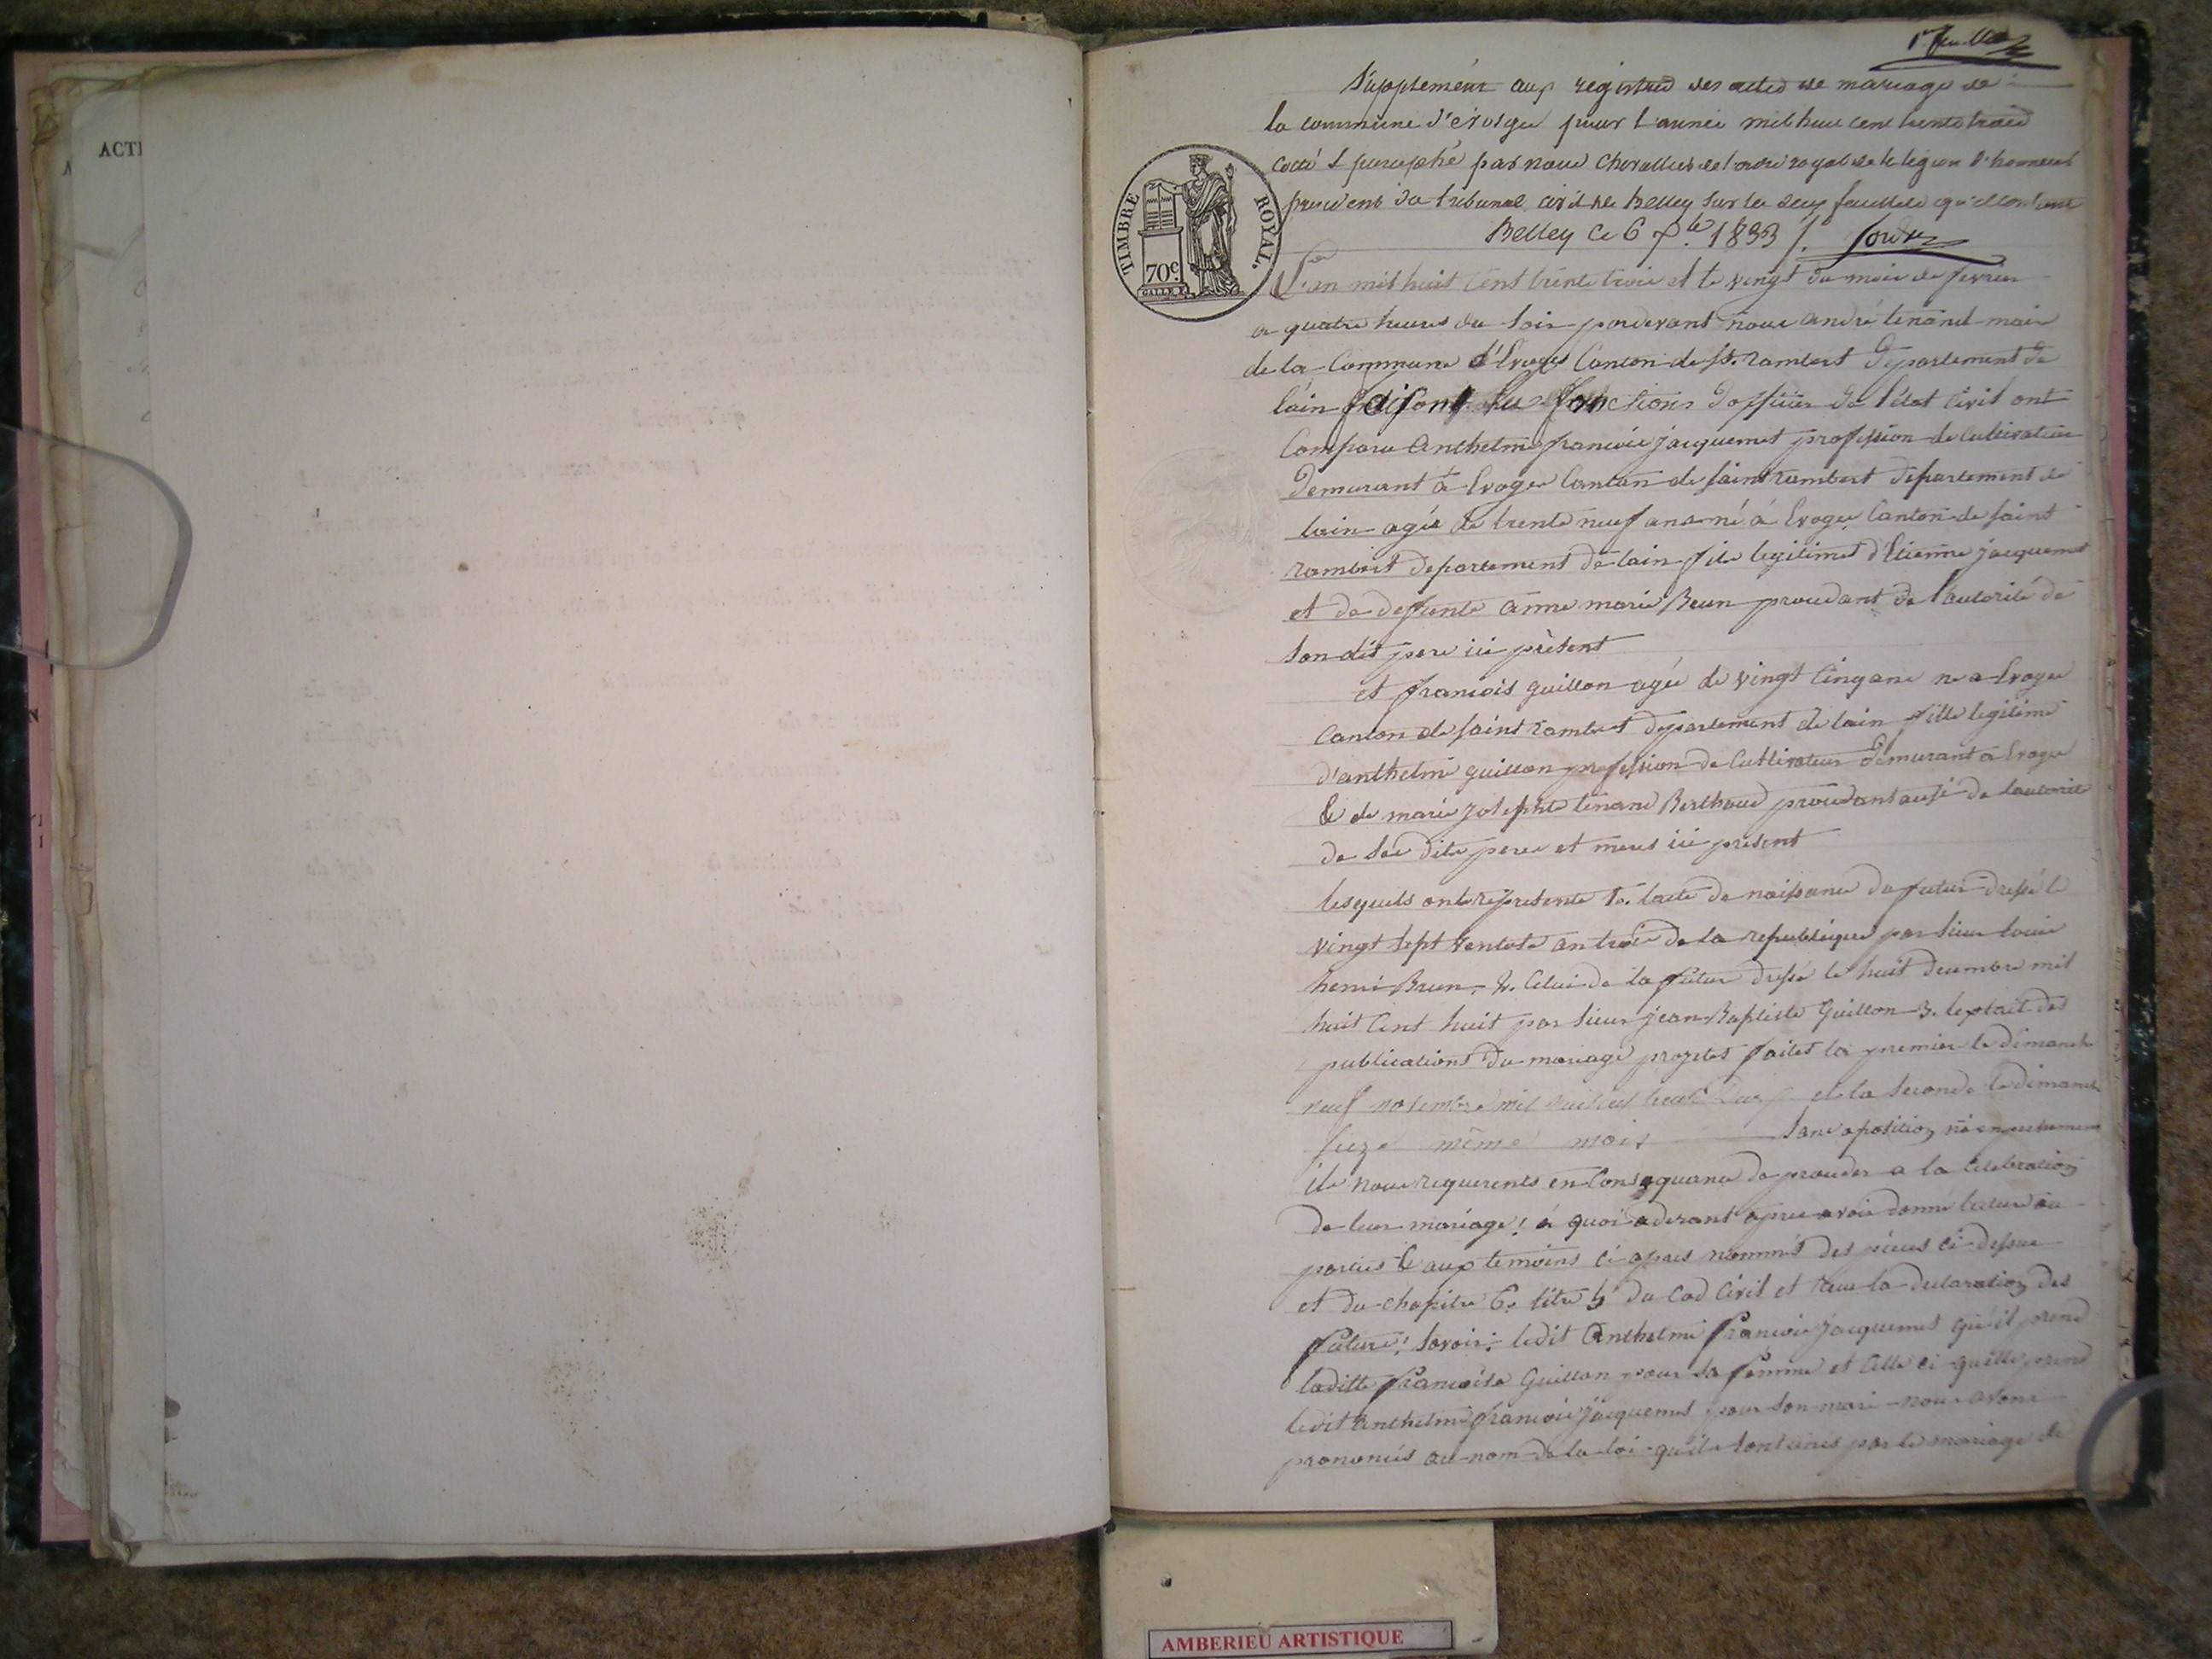 ACTE
1er feuillet
Supplement aux registres des actes de mariage de
la commune d'evosges pour l'année mil huit cent trente trois
cotté & paraphé par nous chevallier de l'ordre royal de la legion d'honneur
president du tribunal civil de Belley sur les deux feuillets qu'il contient
Belley Ce 6 7bre 1833
TIMBRE ROYAL.
70c
L'an mil huit cent trente trois et le vingt du mois de fevrier
a quatre heures du soir pardevant nous andré tenand maire
de la Commune d'Evoges Canton de St. rambert Departement de
lain faisant les fonctions dofficier de l'état Civil ont
Comparu Anthelme francois jacquemet profession de Cultivateur
Demurant à Evoges Canton de saint rambert departement de
lain agée de trente neuf ans né à Evoges Canton de saint
rambert departement de lain fils legitimes d'Etienne jacquemet
et de defunte anne marie Brun procedant de l'autorité de
son dit pere ici présent
et francois guillon agée de vingt cinq ans ne a Evoges
Canton de saint rambert departement de lain fille legitime
d'anthelme guillon profession de Cultivateur Demurant a Evoges
& de marie josephte tenand Berthoud procedant aussi de lautorité
de ses dits peres et meres ici present
lesquels ont representé 1o. lacte de naissance du futur dressé le
vingt sept ventose an trois de la republique par sieur louis
henri Brun. 2. Celui de la futur dressé le huit decembre mil
huit Cent huit par sieur jean Baptiste Guillon 3. lextrait des
publications du mariage projetes faites la premier le dimanche
neuf novembre mil huit cent trente et la seconde le dimanche
seize même mois sans oposition ni empechement
ils nous requerents en Consequance de proceder a la Celebration
de leur mariage! à quoi aderant apres avoir donné lecture au
parties & aux temoins ci-apres nommés des pieces ci-dessus
et du chapitre 6. titre 5 du Cod Civil et recu la declaration des
futurs! savoir: ledit Anthelme francois jacquemet qu'il prend
laditte francoise Guillon pour sa femme et Celle ci qu'elle prend
ledit Anthelme francois jacquemet pour son mari nous avons
prononcés au nom de la loi qu'ils sont unis par le mariage de
AMBERIEU ARTISTIQUE